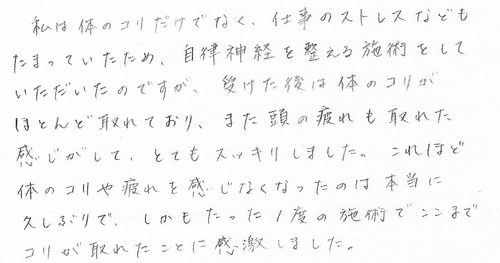 私は体のコリだけでなく、仕事のストレスなども
たまっていたため、自律神経を整える施術をして
いただいたのですが、受けた後は体のコリが
ほとんど取れており、また頭の疲れも取れた
感じがして、とてもスッキリしました。これほど
体のコリや疲れを感じなくなったのは本当に
久しぶりで、しかもたった1度の施術でここまで
コリが取れたことに感激しました。